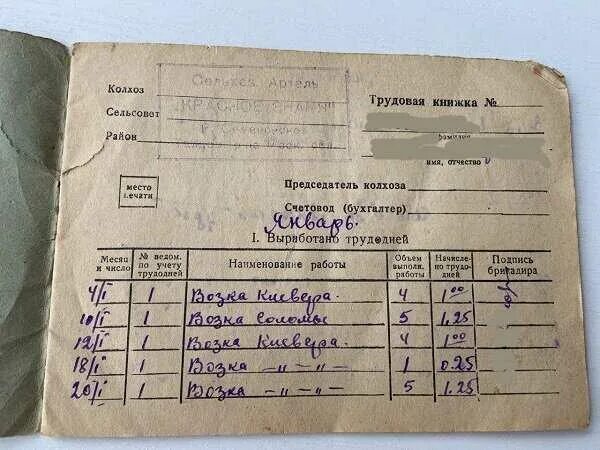 Колхоз
Сельхоз Артель
Сельсовет
"КРАСНОЕ ЗНАМЯ"
Район
Трудовая книжка №
фамилия
имя, отчество
место
печати
Председатель колхоза
Счетовод (бухгалтер)
Январь.
I. Выработано трудодней
Месяц и число № ведом. по учету трудодней Наименование работы Объем выполн. работы Начислено трудодней Подпись бригадира
4/I 1 Возка Клевера. 4 1 00
10/I 1 Возка Соломы 5 1.25
12/I 1 Возка Клевера. 4 1 00
18/I 1 Возка —〃—〃— 1 0.25
20/I 1 Возка —〃—〃— 5 1.25